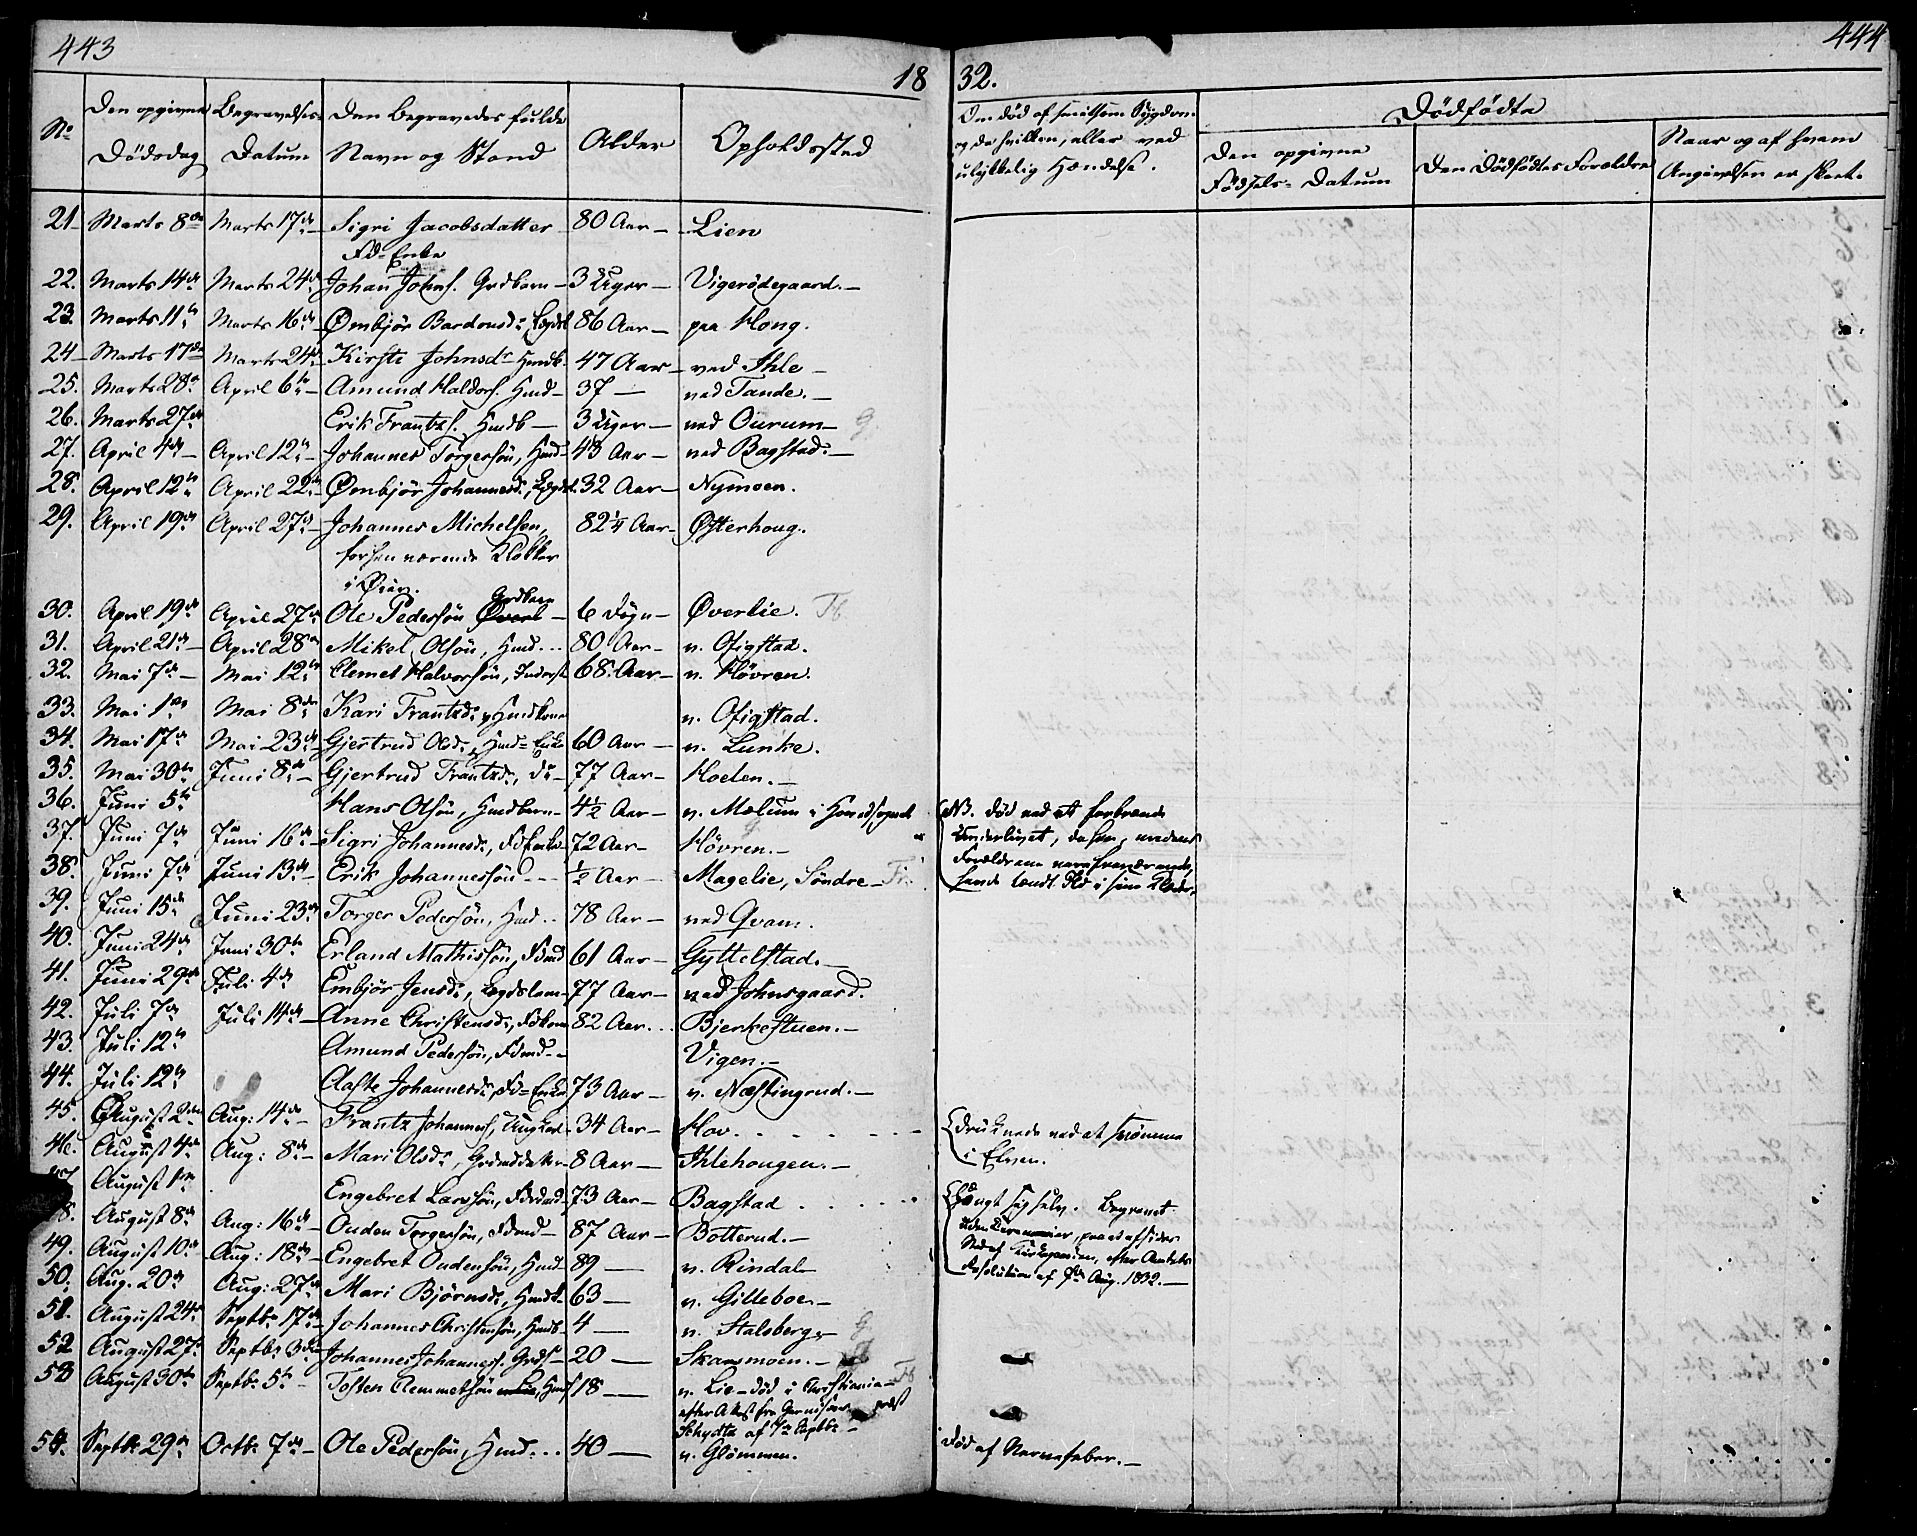 443
444
18 32.
No
Den opgivne Dødsdag
Begravelses Datum
Den Begravedes fulde Navn og Stand
Alder
Opholdssted
Om død af smitsom Sygdom og da hvilken, eller ved ulykkelig Hændelse.
Dødfødte
Den opgivne Fødsels-Datum
Den Dødfødtes Forældre
Naar og af hvem Angivelsen er skeet.
21 Marts 8de Marts 17de Sigri Jacobsdatter 80 Aar Lien
Fd-Enke
22. Marts 14de Marts 24de Johan Johns. Grdbarn 3 Uger Vigerødegaard.
23. Marts 11te Marts 16de Ømbjør Bardonsdr. Lægdsl 86 Aar paa Houg.
24 Marts 17de Marts 24de Kirsti Johnsdr Husmdk. 47 Aar ved Ihle
25. Marts 28de April 6te Amund Haldors. Husmd 37 ved Tande.
26. Marts 27de Erik Frantzs. Husmdb 3 Uger ved Ourum G.
27. April 4de April 12te Johannes Torgersøn, Husmd 43 Aar ved Bagstad.
28. April 12te April 22de Ømbjør Johannesd., Lægdsl. 32 Aar Nymoen.
29. April 19de April 27de Johannes Michelsen, 82¼ Aar Østerhoug.
forhenværende Klokker
i Øier.
30. April 19de April 27de Ole Pedersøn Grdbarn 6 Døgn Øverlie.
31. April 21de April 28de Mikel Olsøn, Husmd. 80 Aar v. Ofigstad.
32. Mai 7de Mai 12te Clemet Halvorsøn, Inderst 68. Aar v. Høvren.
33. Mai 1ste Mai 8de Kari Frantzd., Husmdkone v. Ofigstad.
34. Mai 17de Mai 23de Gjertrud Olsd., Husmd-Enke 60 Aar v. Lunke.
35. Mai 30te Juni 8de Gjertrud Frantzd., do 77 Aar Hoelen.
36. Juni 5te Hans Olsøn, Husmdbarn 4½ Aar v. Mælum i Hovedsognet
NB. død ved at forbrænde
Underlivet, da han, medens
Forældrene vare fraværende,
havde tændt Ild i sine Klæder.
37. Juni 7de Juni 16de Sigri Johannesd., FdEnke 72 Aar Høvren.
38. Juni 7de Juni 13de Erik Johannessøn ½ Aar Magelie, Søndre
39. Juni 15de Juni 23de Torger Pedersøn, Husmd. 78 Aar ved Qvam.
40. Juni 24de Juni 30te Erland Mathissøn, Fdmd 61 Aar Gyttelstad.
41. Juni 29de Juli 4de Embjør Jensd., Lægdslem 77 Aar ved Johnsgaard.
42. Juli 7de Juli 14de Anne Christensd., Fdkone 82 Aar Bjerkestuen.
43. Juli 12te Amund Pedersøn, Fdmd Vigen.
44. Juli 12te Claste Johannesd., Fd-Enke 73 Aar v. Næstingrud.
45. August 2den Aug: 14de Frantz Johannes., Ungkarl 34 Aar Hov.
druknede ved at svømme
i Elven.
46. August 4de Aug: 8de Mari Olsd., Grdmddatter 8 Aar Ihlehougen.
47. August 1ste Engebret Larssøn, Fdmd 73 Aar Bagstad
hængt sig selv. Begravet
uden Ceremonier, paa et afsides
Sted af Kirkegaarden, efter Amtets
Resolution af 7de Aug. 1832.
48. August 8de Aug: 16de Ouden Torgersøn, Fdmd 87 Aar Botterud.
49. August 10de Aug: 18de Engebret Oudensøn, Husmd 89 v. Rindal
50. Aug. 20de Aug: 27de Mari Bjørnsd., Husmdk 63 v. Gilleboe
51. August 24de Septbr 17de Johannes Christensøn, Husmdb 4 v. Stalsberg G
52 August 27de Septbr 3die Johannes Johanness. Grds 20 Skarsmoen.
53 August 30te Septbr 5te Tosten Clemmetsøn, Husmds 18 v. Lie død i Christiania
efter Attest fra Garnisons Præst
Schydtz af 1/2 Septbr
54. Septbr 29de Octbr 7de Ole Pedersøn, Husmd. 40 v. Glømmen.
død af Nervefeber.